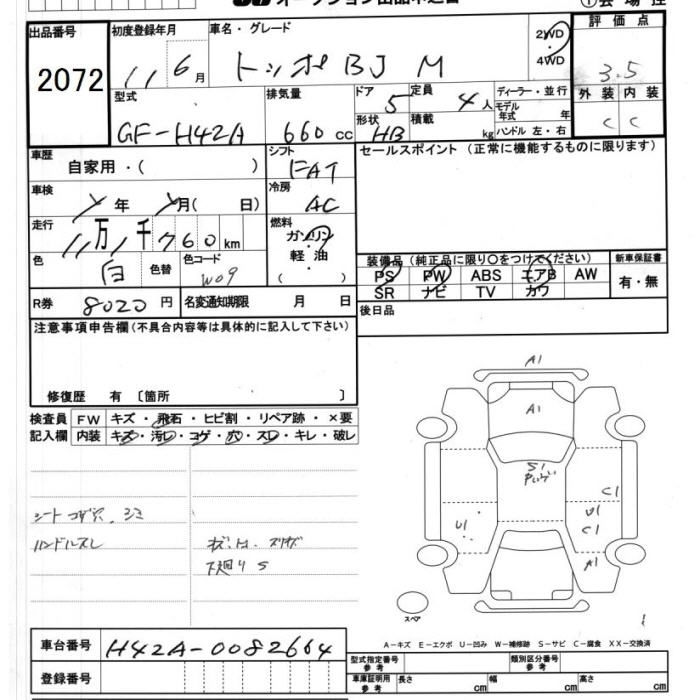 出品番号
2072
初度登録年月
11 6月
車名・グレード
トッポBJ M
2WD
・
4WD
評価点
3.5
型式
GF-H42A
排気量
660 cc
ドア 5
形状 HB
定員 4人
積載 kg
ディーラー・並行
モデル年式 年
ハンドル 左・右
外装 内装
C C
車歴
自家用・( )
シフト
FAT
セールスポイント(正常に機能するものに限ります)
車検
年 月( 日)
冷房
AC
走行
11万1千760km
燃料
ガソリン
軽・油
( )
色
白
色替
色コード
W09
装備品(純正品に限り○をつけてください)
PS PW ABS エアB AW
SR ナビ TV カワ
新車保証書
有・無
R券 8020円
名変通知期限 月 日
後日品
注意事項申告欄(不具合内容等は具体的に記入して下さい)
修復歴 有 〔箇所 〕
検査員記入欄
FW キズ・飛石・ヒビ割・リペア跡・×要
内装 キズ・汚レ・コゲ・穴・スレ・キレ・破レ
シート コゲ穴、シミ
ハンドルスレ
下廻りS
A1
A1
S1
C1
U1
U1
C1
A1
スペア
A-キズ E-エクボ U-凹み W-補修跡 S-サビ C-腐食 XX-交換済
車台番号
H42A-0082664
登録番号
型式指定番号
参考
類別区分番号
参考
車庫証明用
参考
長さ cm
幅 cm
高さ cm